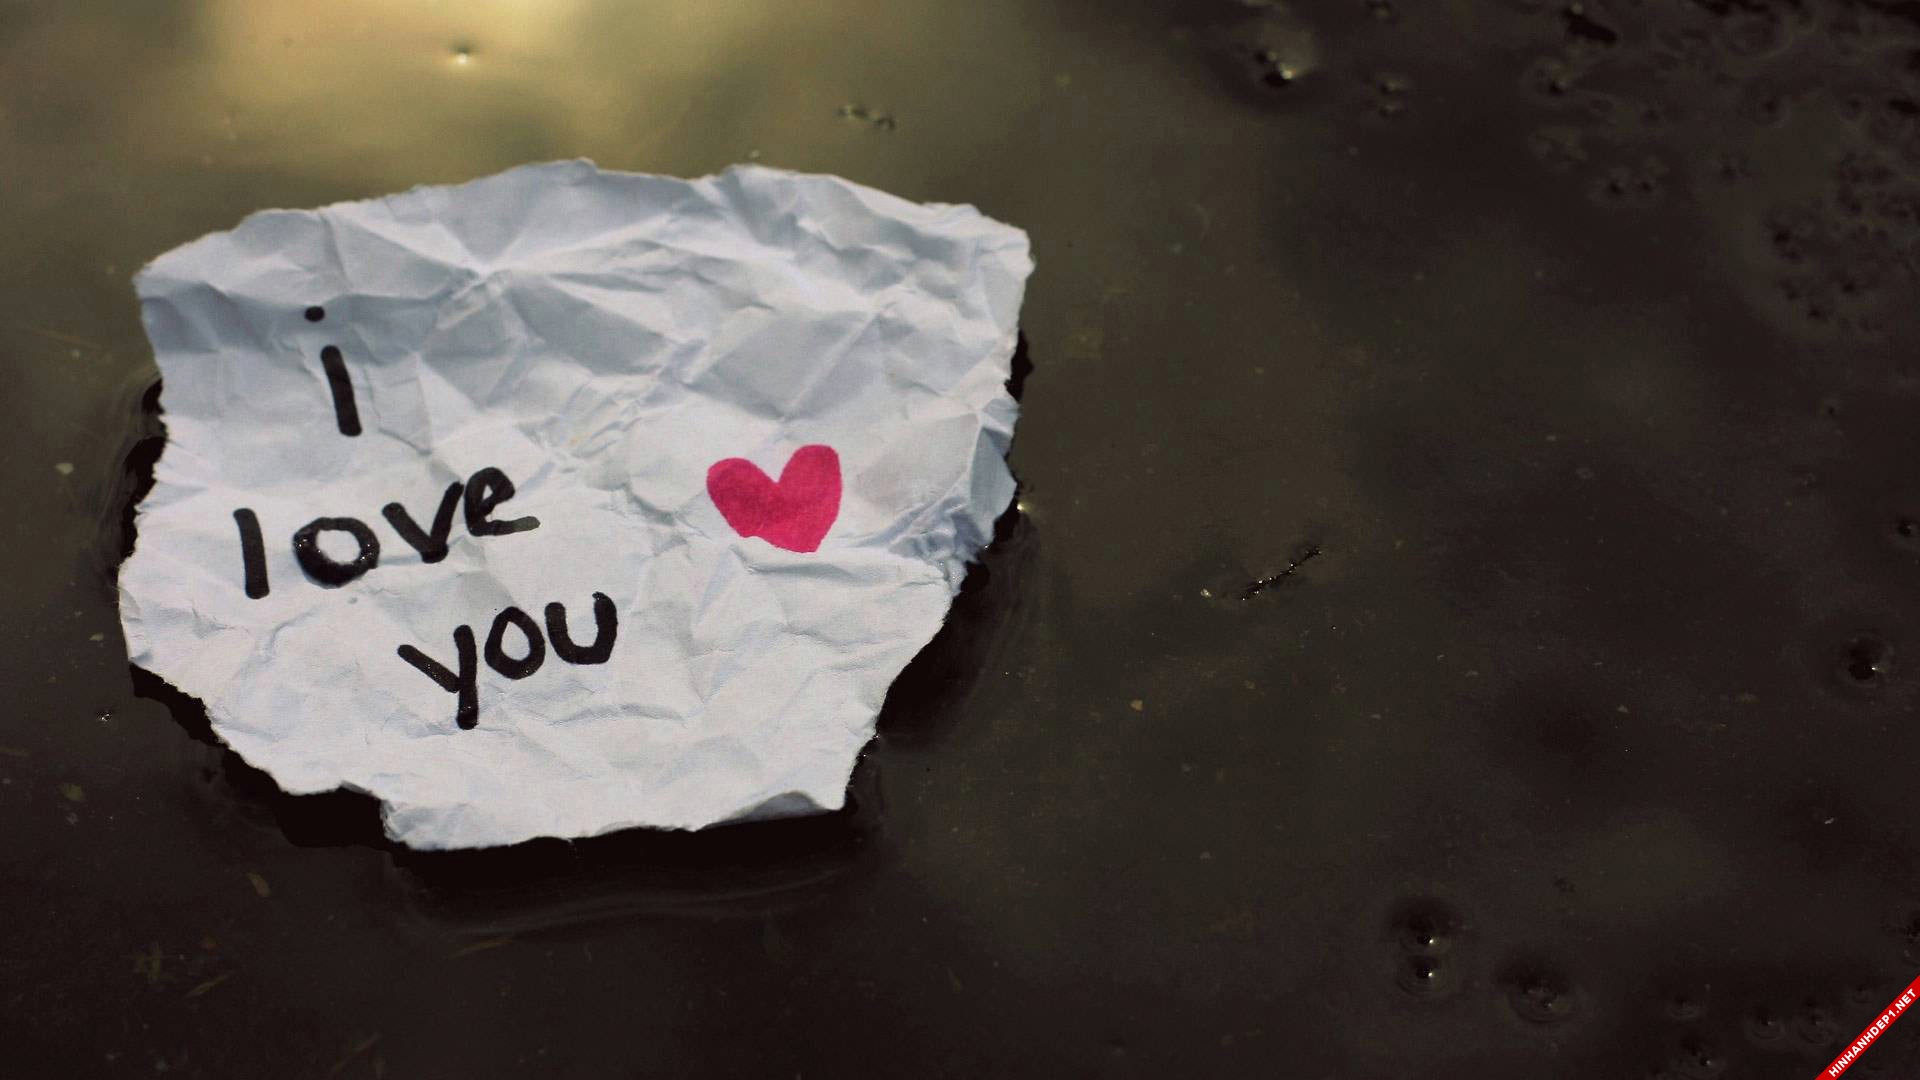 i
love
you
HINHANHDEP1.NET